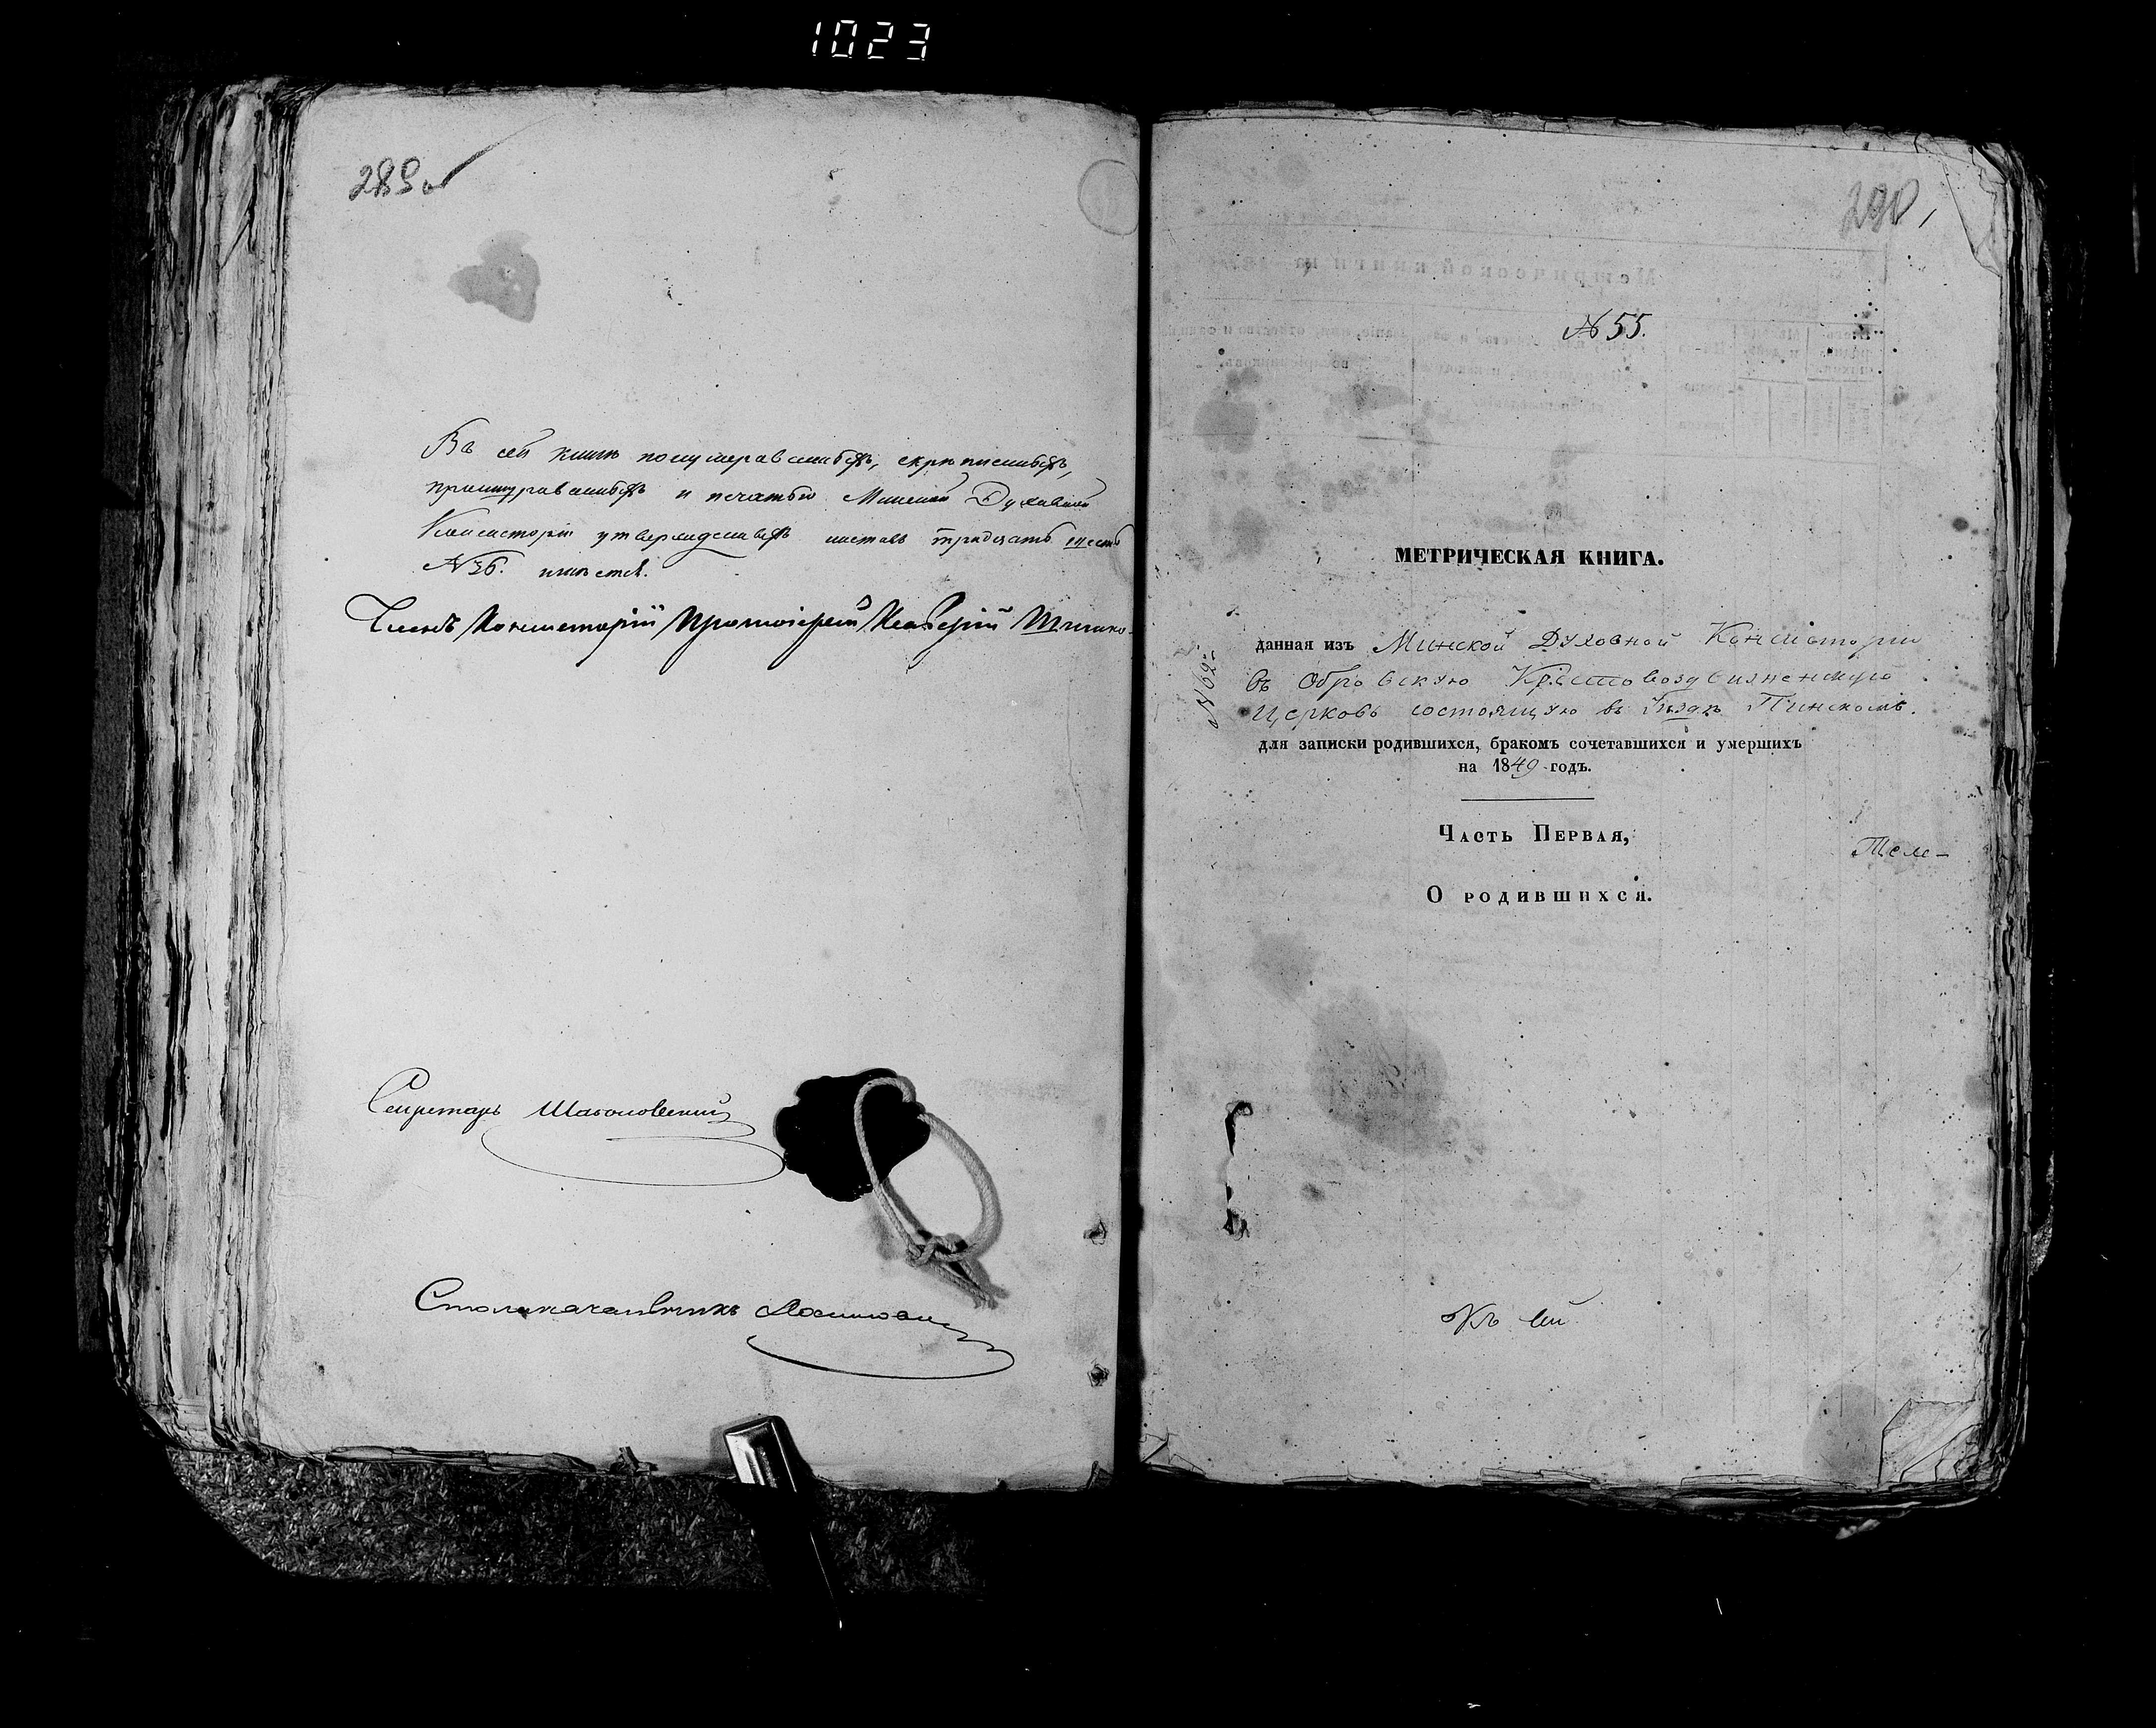 1023
289 об
Въ сей книгѣ понумерованныхъ, скрѣпленныхъ,
прошнурованныхъ и печатью Минской Духовной
Консисторіи утвержденныхъ листовъ тридцать шесть
№ 36. имѣется.
Членъ Консисторіи Протоіерей
Секретарь
Столоначальникъ
290
№ 55.
МЕТРИЧЕСКАЯ КНИГА.
№ 62
данная изъ Минской Духовной Консисторіи
въ Обровскую Крестовоздвиженскую
Церковь состоящую въ Уѣздѣ Пинскомъ.
для записки родившихся, бракомъ сочетавшихся и умершихъ
на 1849 годъ.
Часть Первая,
О родившихся.
Къ сей